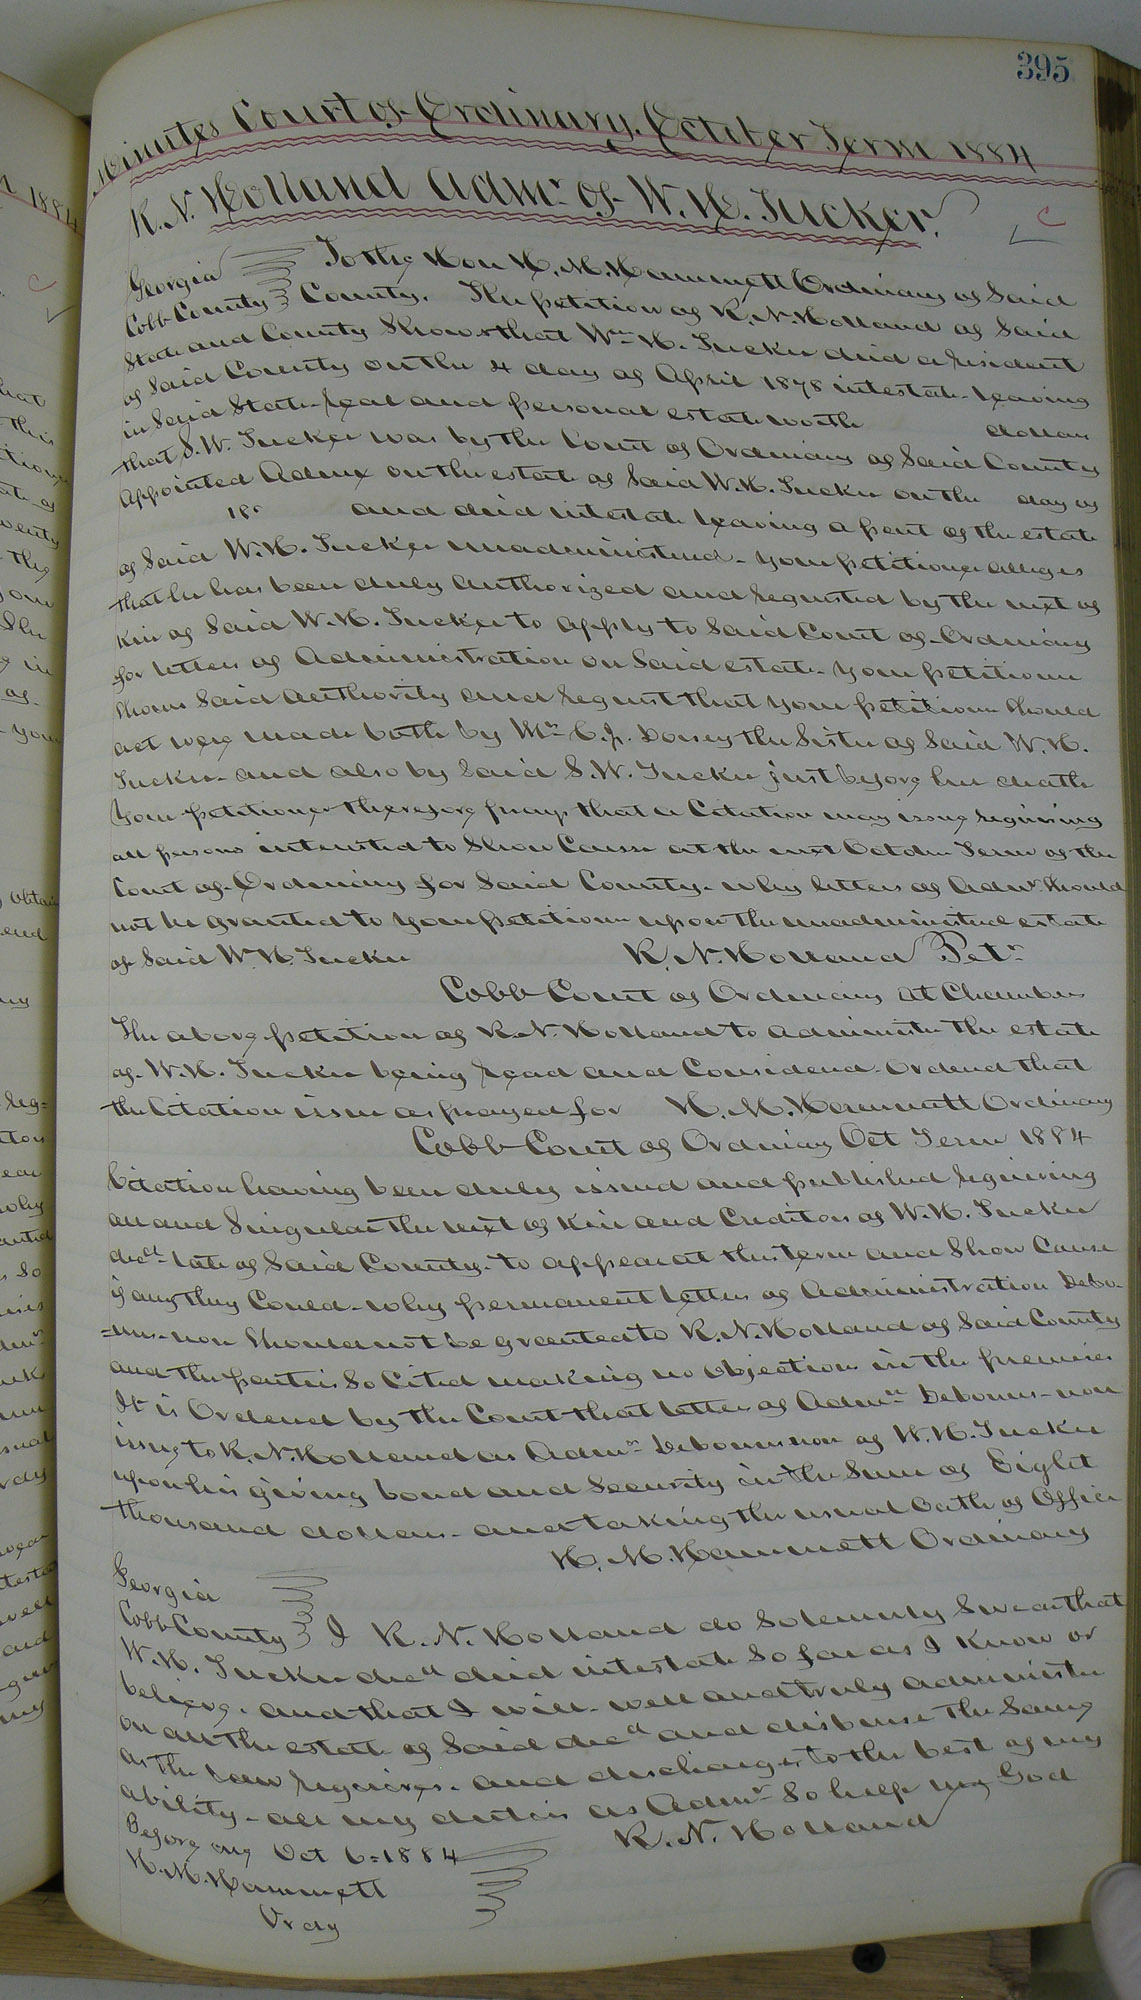 395
Minutes Court of Ordinary. October Term 1884
R. N. Holland Admr of W. H. Tucker.
C
Georgia
Cobb County
To the Hon H. M. Hammett Ordinary of Said
County. The petition of R. N. Holland of Said
State and County Shows that Wm H. Tucker died a resident
of Said County on the 4 day of April 1878 intestate leaving
in Said State real and personal estate worth dollars
that S. W. Tucker was by the Court of Ordinary of Said County
appointed Admx on the estate of Said W. H. Tucker on the day of
18 and died intestate leaving a part of the estate
of Said W. H. Tucker unadministered. your petitioner alleges
that he has been duly authorized and requested by the next of
kin of Said W. H. Tucker to apply to Said Court of Ordinary
for letters of Administration on Said estate. your petitioner
shows Said authority and request that your petitioner should
act were made both by Mrs Dorsey the Sister of Said W. H.
Tucker and also by Said S. W. Tucker just before her death
Your petitioner therefore prays that a Citation may issue requiring
all persons interested to Show Cause at the next October Term of the
Court of Ordinary for Said County. why letters of Admr should
not be granted to your petitioner upon the unadministered estate
of Said W. H. Tucker R. N. Holland Petr
Cobb Court of Ordinary at Chambers
The above petition of R. N. Holland to administer the estate
of W. H. Tucker being read and Considered. Ordered that
the Citation issue as prayed for H. M. Hammett Ordinary
Cobb Court of Ordinary Oct Term 1884
Citation having been duly issued and published requiring
all and Singular the next of Kin and Creditors of W. H. Tucker
decd late of Said County. to appear at this term and Show Cause
if any they Could. why permanent letters of Administration Debo-
=nus-non Should not be granted to R. N. Holland of Said County
and the parties So Cited making no objection in the premises
It is Ordered by the Court that letters of Admn Debonus-non
issue to R. N. Holland as Admr Debonus non of W. H. Tucker
upon his giving bond and Security in the Sum of Eight
thousand dollars. and taking the usual Oath of Office
H. M. Hammett Ordinary
Georgia
Cobb County I R. N. Holland do Solemnly Swear that
W. H. Tucker decd died intestate So far as I know or
believe. and that I will well and truly administer
on all the estate of Said decd and disburse the Same
as the law requires. and discharge to the best of my
ability. all my duties as Admr So help me God
Before me Oct 6=1884 R. N. Holland
H. M. Hammett
Ordy